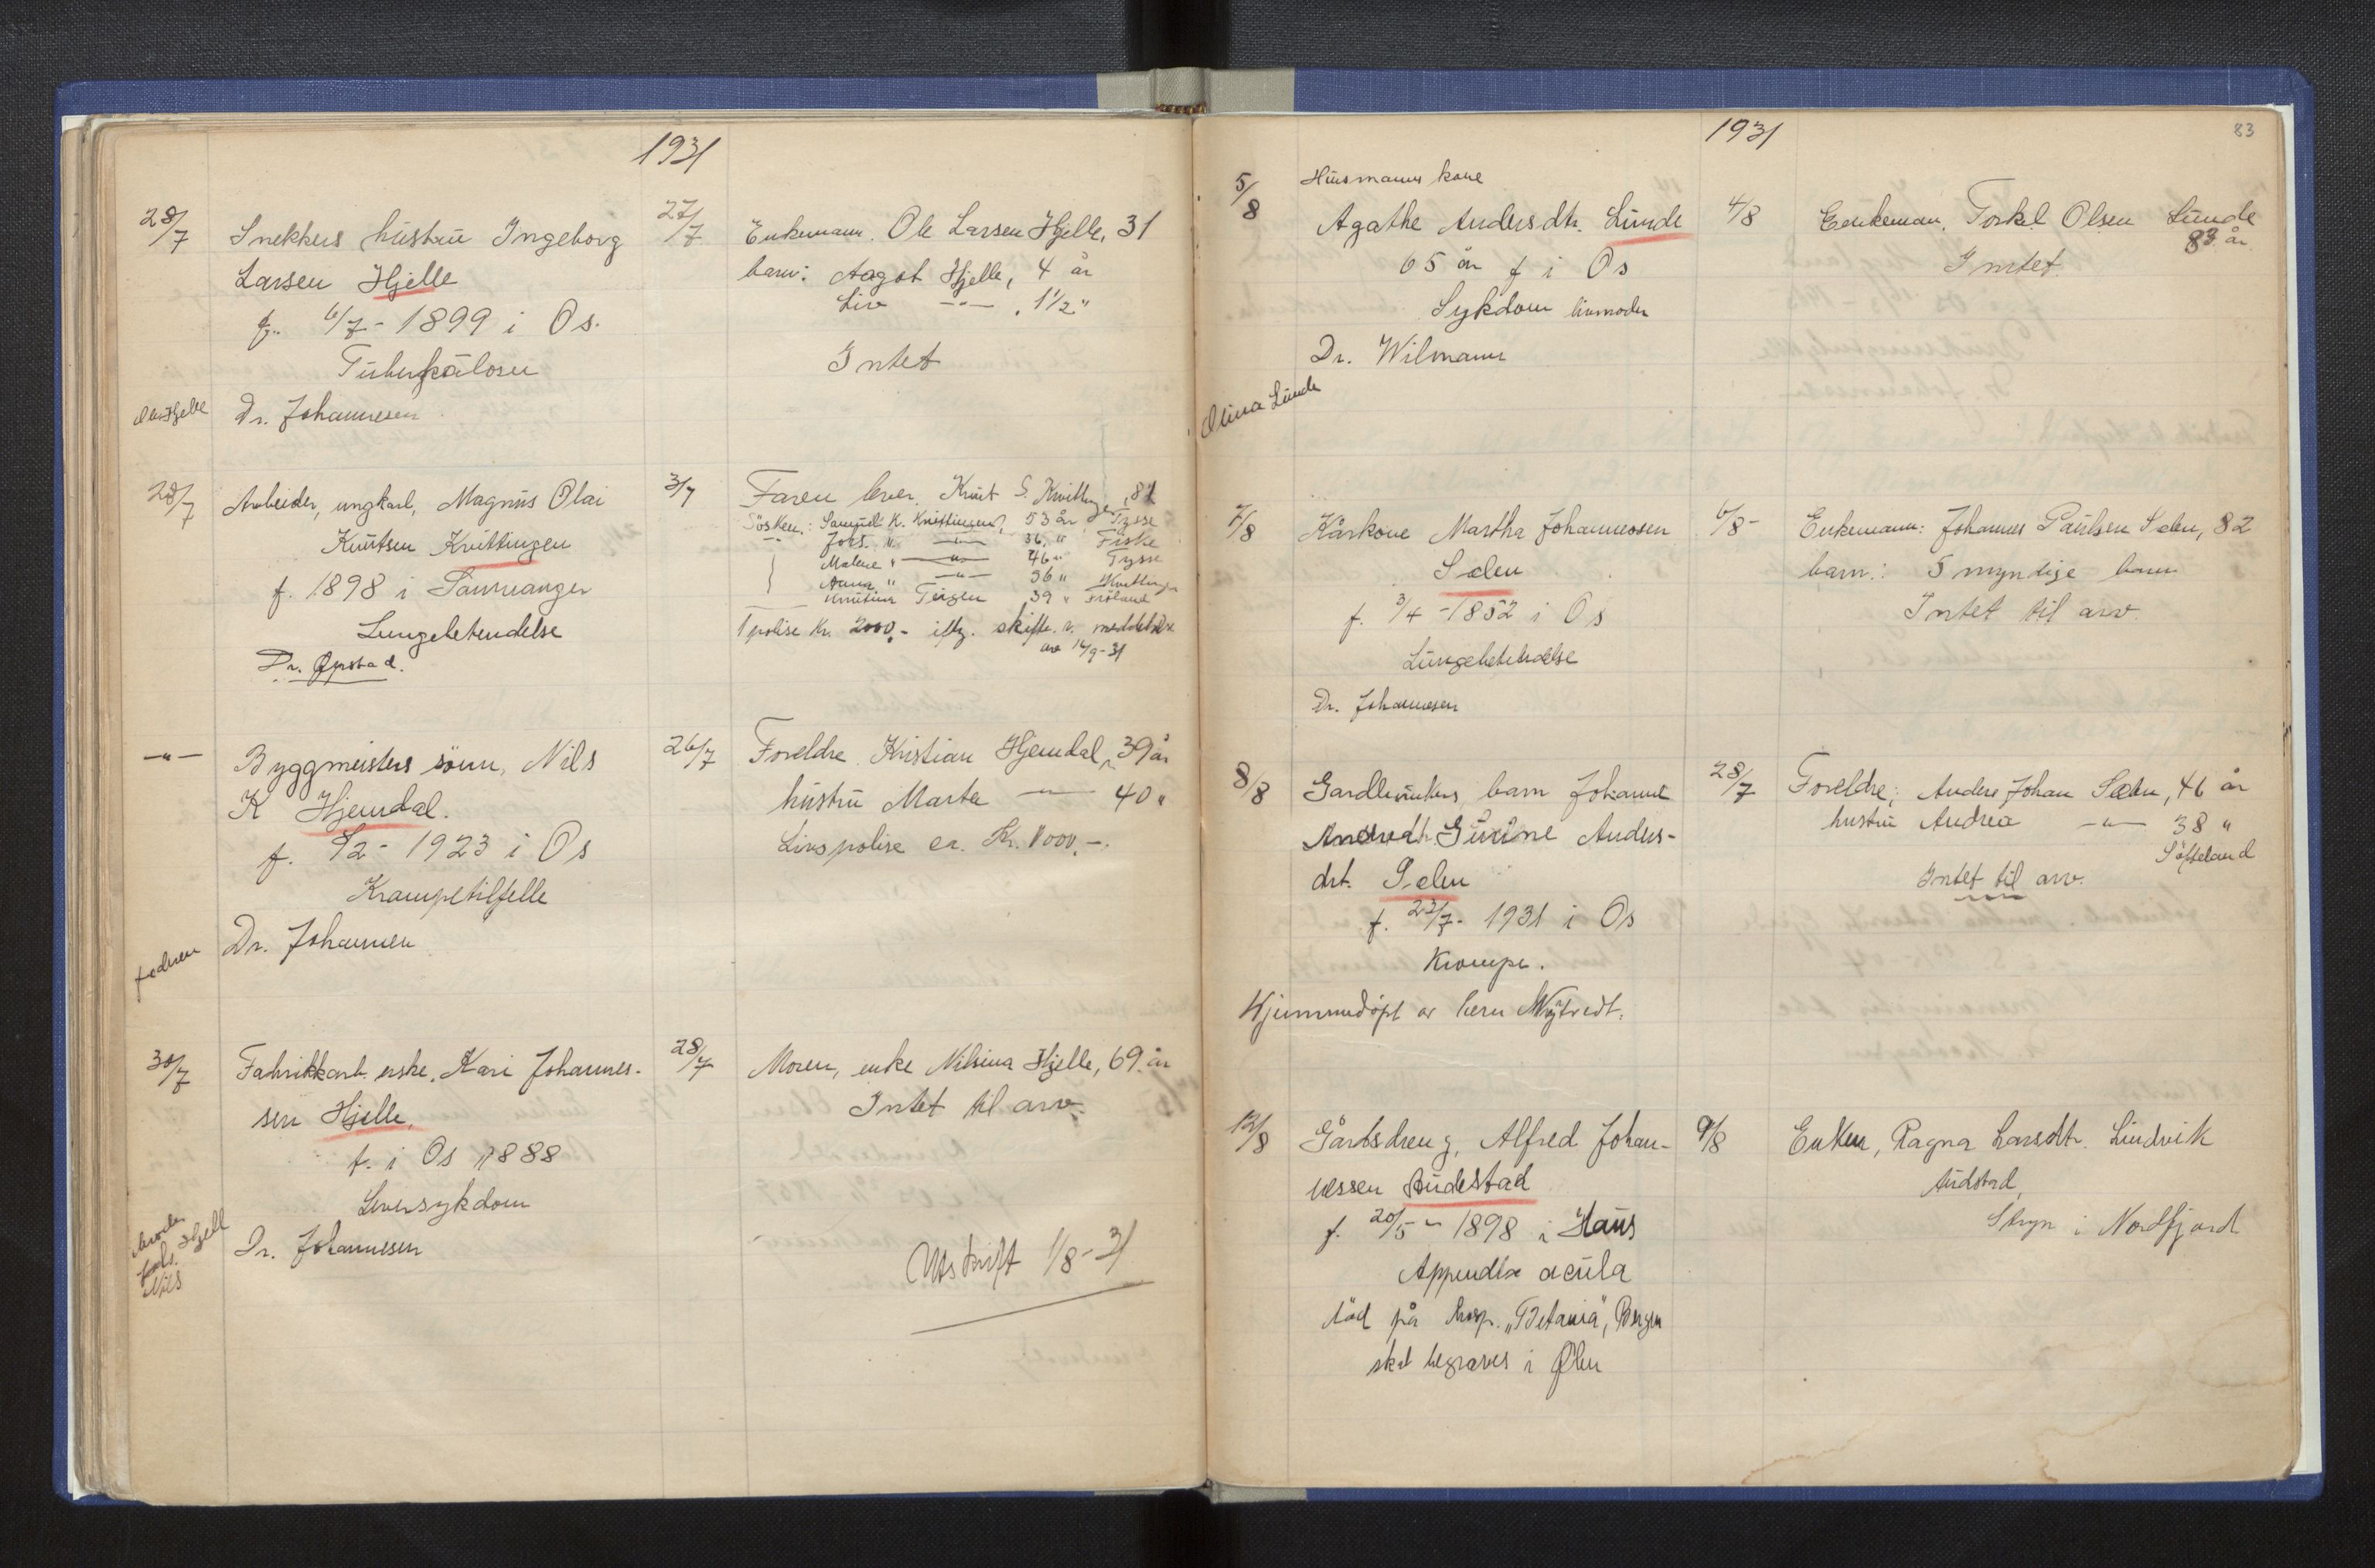 1931
28/7 Snekkers hustru Ingeborg 27/7 Enkemann. Ole Larsen Hjelle, 31
Larsen Hjelle barn: Aagot Hjelle, 4 år
f. 6/7 - 1899 i Os. Liv —"— , 1 1/2 "
Tuberkulosen Intet
Ole Hjelle Dr. Johannesen
28/7 Arbeider, ungkarl, Magnus Olai 3/7 Faren lever Knut S. Kvittingen, 81
Knutsen Kvittingen Søsken: Samuel K. Kvittingen, 53 år, Tysse
—"— Johs. " —"— 36 " Fiske
f. 1898 i Samnanger Malene " —"— 46 " Tysse
Anna " —"— 36 " Kvittingen
Teigen 39 " Frøland
Lungebetendelse 1 polise kr. 2000,- iflg. skifte. r. meddelelse
av 16/9-31
Dr. Opstad.
—"— Byggmeisters sönn, Nils 26/7 Foreldre Kristian Hjemdal, 39 år
K Hjemdal. hustru Marta —"— 40 "
f. 1923 i Os Livspolise ca. Kr. 1000,-.
Krampetilfelle
faderen Dr. Johannesen
30/7 Fabrikkarb.erske, Kari Johannes- 28/7 Moren, enke Nilsina Hjelle, 69 år
sen Hjelle, Intet til arv.
f. i Os 1888
Leversykdom
Johs. Hjelle
Nils
Dr. Johannesen
Utskrift 1/8-31
1931 83
5/8 Husmanns kone
Agathe Andersdtr. Lunde 4/8 Enkeman, Torkel Olsen Lunde
83 år.
65 år f i Os Intet
Sykdom livmoder
Dr. Wilmann
Olina Lunde
7/8 Kårkone Martha Johannessen 6/8- Enkemann: Johannes Paulsen Sælen, 82
Sælen barn: 5 myndige barn
f. 3/4 -1852 i Os Intet til arv.
Lungebetendelse
Dr. Johannesen
8/8 Gardbrukers barn Johanne 28/7 Foreldre; Anders Johan Sælen, 46 år
Gurine Anders- hustru Andrea —"— 38 "
Søfteland
drt. Sælen Intet til arv.
f. 23/7 - 1931 i Os
Krampe.
Hjemmedöpt av lærer Mytvedt.
12/8 Gårdsdreng, Alfred Johan- 9/8 Enken, Ragna Larsdtr. Lindvik
nessen Audestad Audstad,
f. 20/5 - 1898 i Haus Stryn i Nordfjord
Appendix acuta
död på hosp. "Betania", Bergen
skal begraves i Ølen